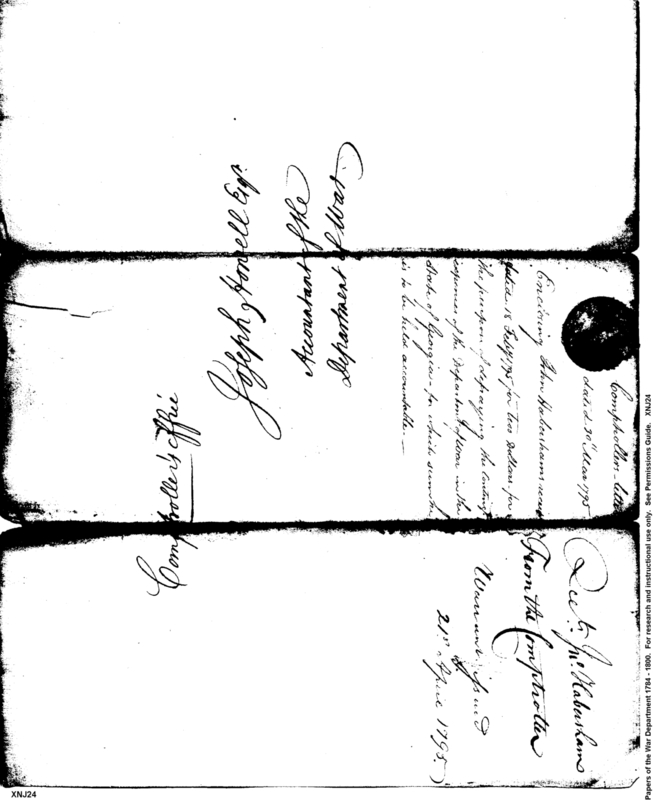 Joseph Howell Esqr.
Accountant of the
Department of War.
Comptroller's office
Comptrollers letter
dated 30th Mar 1795
Enclosing John Habershams
dated 18 Feby 1795 for two Dollars for
the purpose of defraying the
expences of the Department of War in the
State of Georgia for which sum
is to be held accountable —
Jno. Habersham
From the Comptroller
Warrant issued
21st April 1795
Papers of the War Department 1784 - 1800. For research and instructional use only. See Permissions Guide. XNJ24
XNJ24